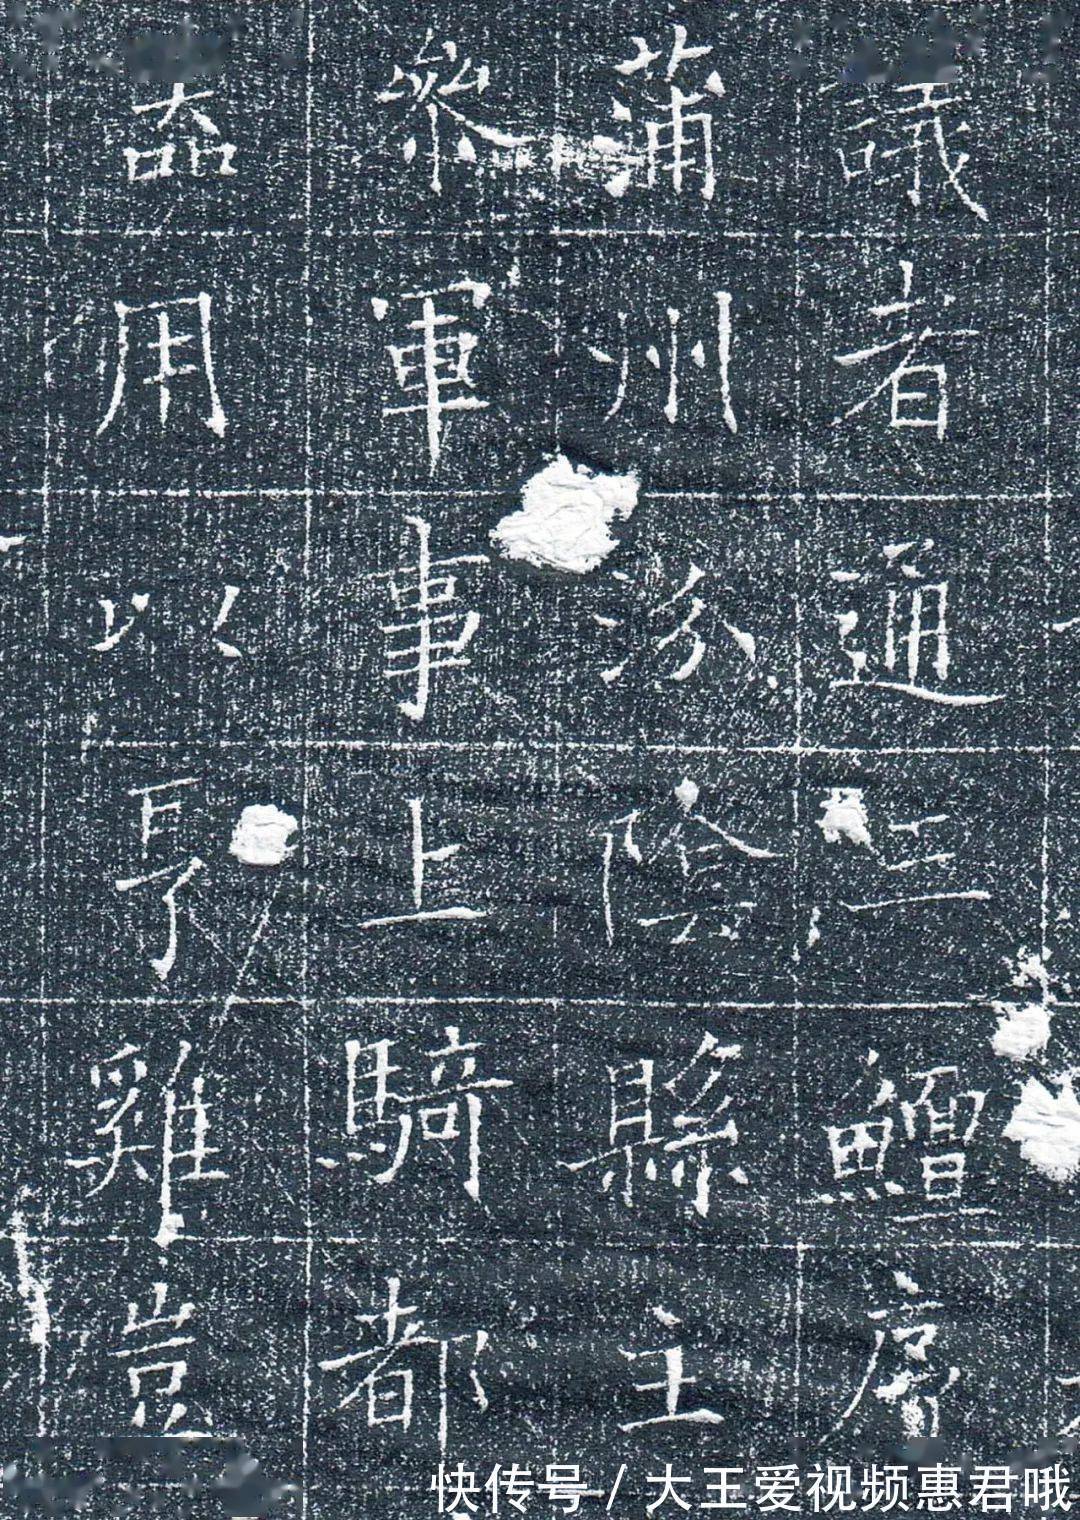 議者通三鱣
蒲州汾陰縣主
參軍事上騎都
器用以亨雞豈
快传号/大王爱视频惠君哦